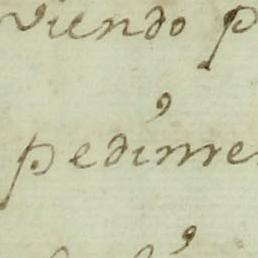 viendo p
pedime